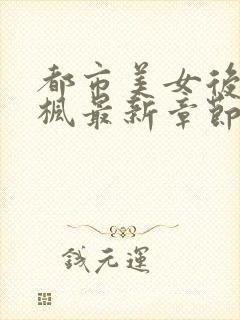 都市美女後
楓最新章節
錢元運